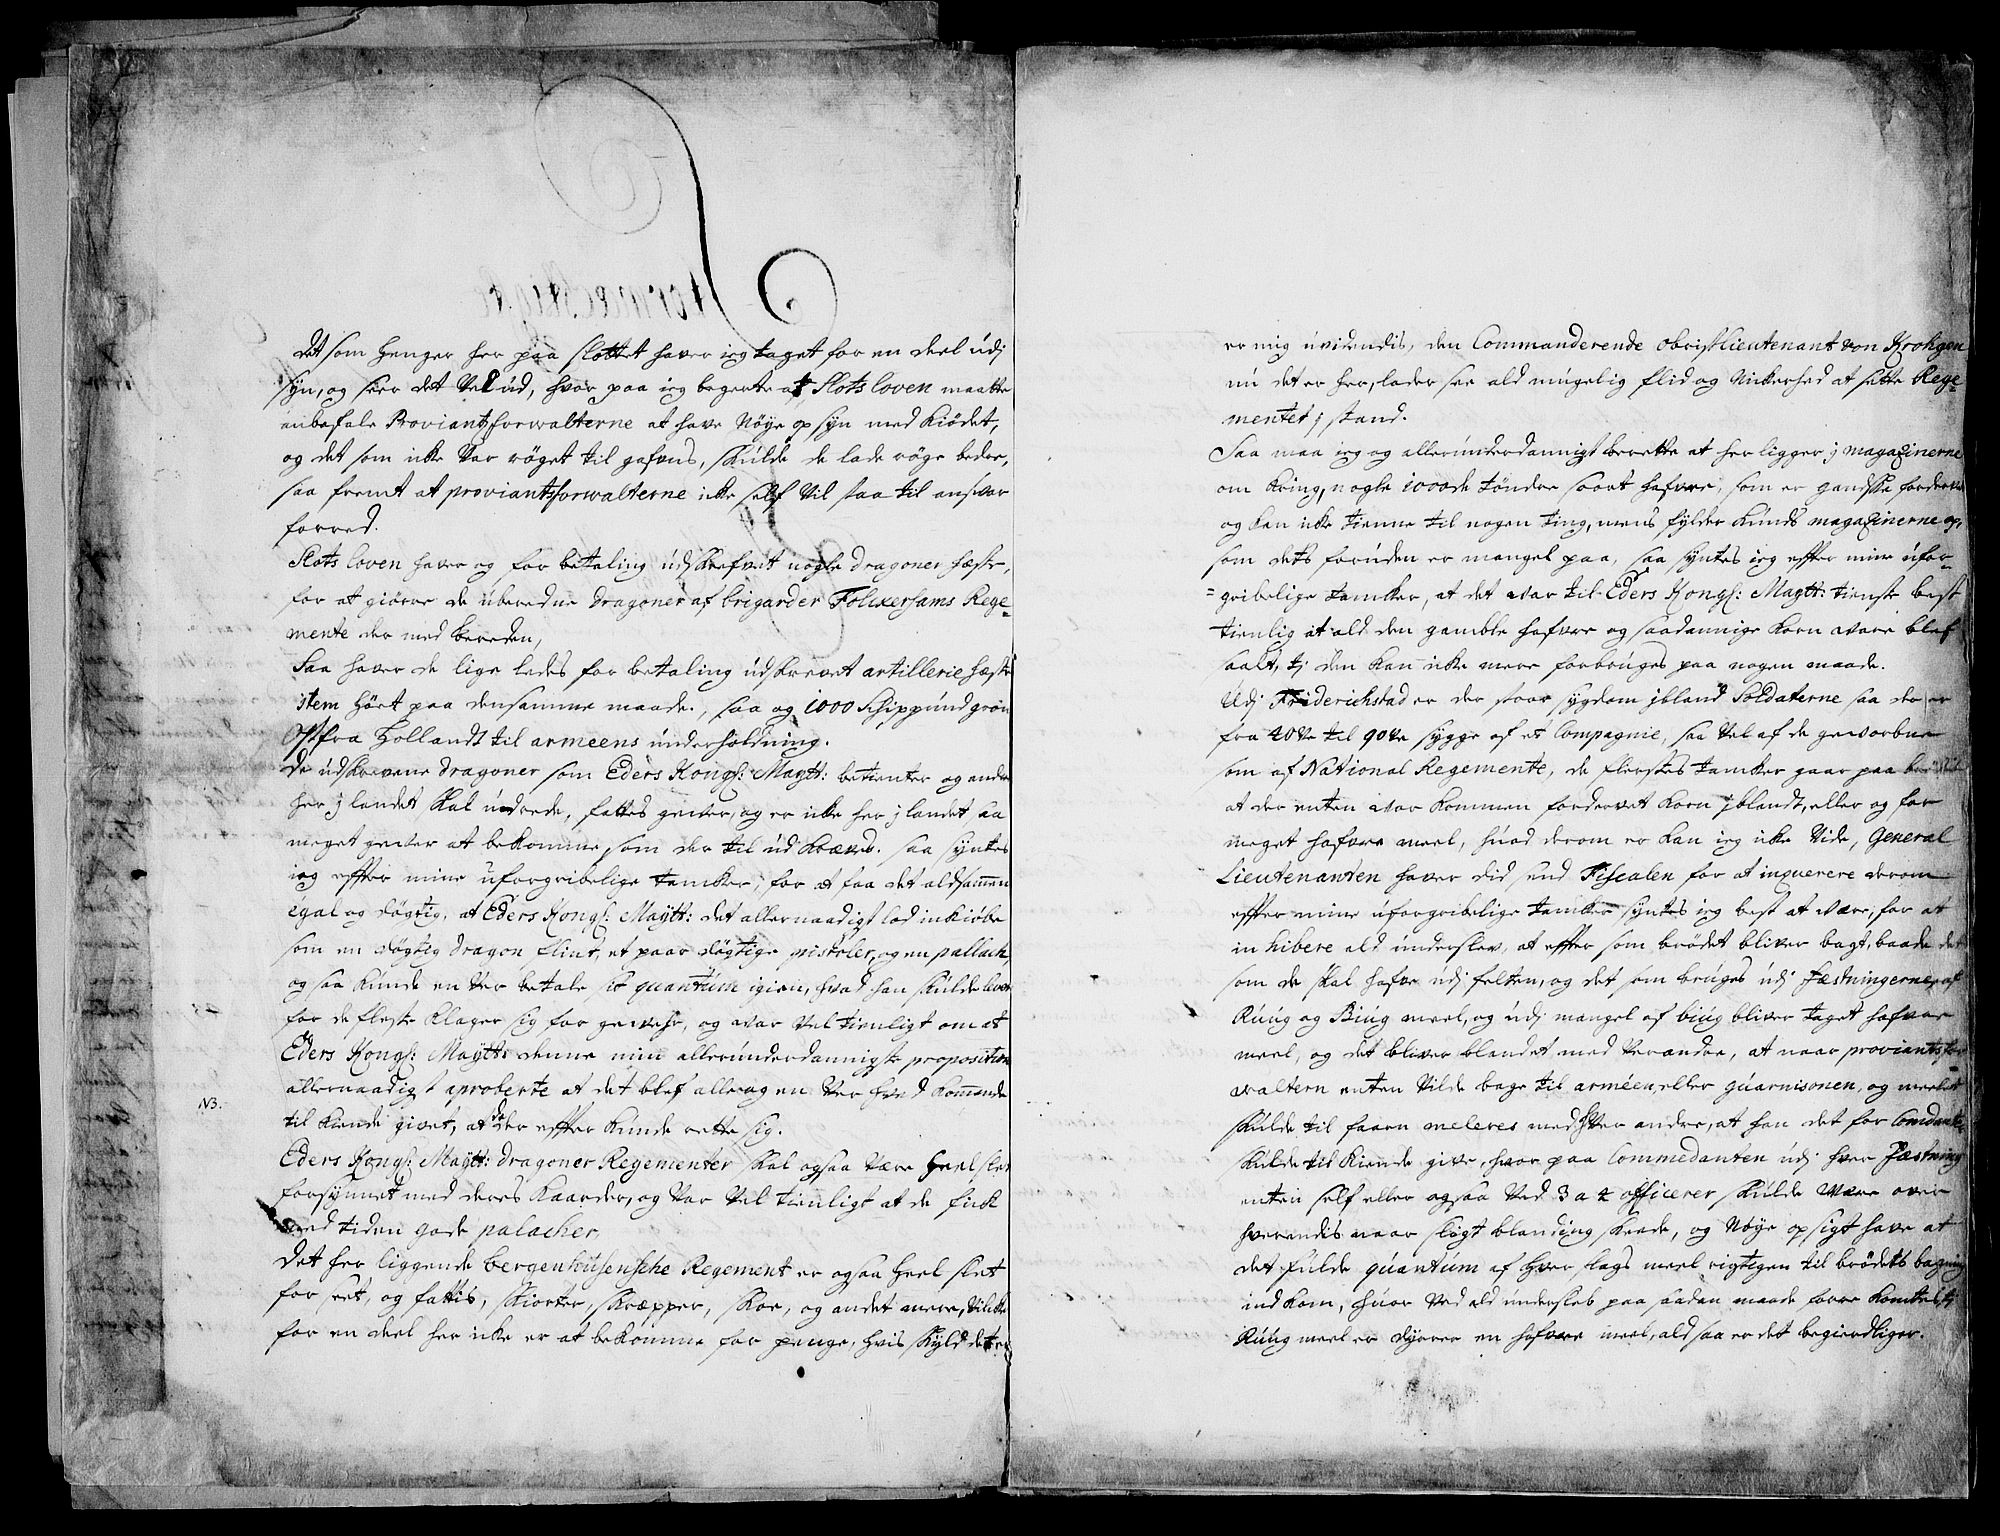 det som henger her paa slottet haver ieg taget for en deel udj
syn, og seer det vel ud, hvor paa ieg begerte at Slots loven maatte
anbefale Proviantsforwalterne at have nøye op syn med kiødet,
og det som icke var röget til gafens, skulde de lade röge bedre,
saa fremt at proviantsforwalterne icke self vil staa til ansvar
forved.
Slots loven haver og for betaling udskrefvet nogle dragoner hæste,
for at giörre de uberedne dragoner af brigarder Folckersams Rege-
mente der med bereden,
Saa haver de lige ledes for betaling udskrevet artillerie hæste
item hört paa densamme maade, saa og 1000 Schippund gron
Ost fra Hollandt til armeens underholdning.
De udskrevene dragoner som Eders Kongl: Maytt: betienter og andre
her j landet skal udrede, fattes gever, og er icke her j landet saa
meget gever at bekomme som der til ud kræves. saa syntes
ieg effter mine uforgribelige tancker, for at faa det aldsammen
egal og dögtig, at Eders Kongl: Maytt: det allernaadigst lod inkiöbe
som en dögtig dragon flint, et paar dögtige pistoler, og en pallach
og saa kunde en ver betale sit quantum igien, hvad han skulde levere
for de fleste klager sig for gewehr, og var vel tienligt om at
Eders Kongl: Maytt: denne min allerunderdannigste proposition
allernaadigst aproberte at det blef allerogen ver hved kommende
N3. til kiende givet, at de der effter kunde rette sig.
Eders Kongl: Maytt: dragoner Regementer skal ogsaa være heel slet
forsynnet med deres kaarder, og var vel tienligt at de fick
med tiden gode palacher,
Det her liggende bergenhusensche Regement er ogsaa heel slet
for seet, og fattis, skiorter, skræpper, skoe, og andet mere, vilcke
for en deel her icke er at bekomme for penge, hvis skyld det er
er mig uvidendis, den Commanderende obristlieutenant von Krohgen
nu det er her, lader see ald mugelig flid og nickerhed at sette Rege-
mentet j stand.
Saa maa ieg og allerunderdannigst berette at her ligger j magazinerne
om kring, nogle 1000de töndre saart hafvre, som er gandske fordervet
og kan icke tienne til nogen ting, mens fylder kuns magazinerne op,
som dets foruden er mangel paa, saa syntes ieg effter mine ufor-
gribelige tancker, at det var til Eders Kongl: Maytt: tieniste best
tienlig at ald den gamble hafvre og saadannige korn vare blef
saalt, tj den kan icke mere forbruges paa nogen maade.
Udj Friderichstad er der stoor sygdom jbland Soldaterne saa der er
fra 40ve til 90ve sygge af et Compagnie, saa vel af de gevorbne
som af National Regemente, de flerstes tancker gaar paa
at der enten var kommen fordervet korn jblandt, eller og for
meget hafvre meel, huad derom er kan ieg icke vide, General
Lieutenanten haver did send Fiscalen for at inqverere derom
effter mine uforgribelige tancker syntes ieg best at være, for at
in hibere ald underslev, at effter som brödet bliver bagt, baade det
som de skal hafve udj felten, og det som bruges udj fæstningerne, af
Ruug og Biug meel, og udj mangel af biug bliver taget hafvre
meel, og det bliver blandet med verandre, at naar proviantsfor
waltern enten vilde bage til arméen, eller guarnisonen, og meelet
skulde til faarn meleres med hver andre, at han det for Comdante
skulde til kiende give, hvor paa Commedanten udj hver fæstning
enten self eller ogsaa ved 3 a 4 officerer skulde være over
hverendis naar sligt blanding skeede, og nöye op sigt have at
det fulde quantum af hver slags meel rigtigen til brödets bagning
ind kom, huor ved ald undersleb paa saadan maade forre komtes, tj
Ruug meel er dyrrer en hafvre meel, ald saa er det begierdliger.